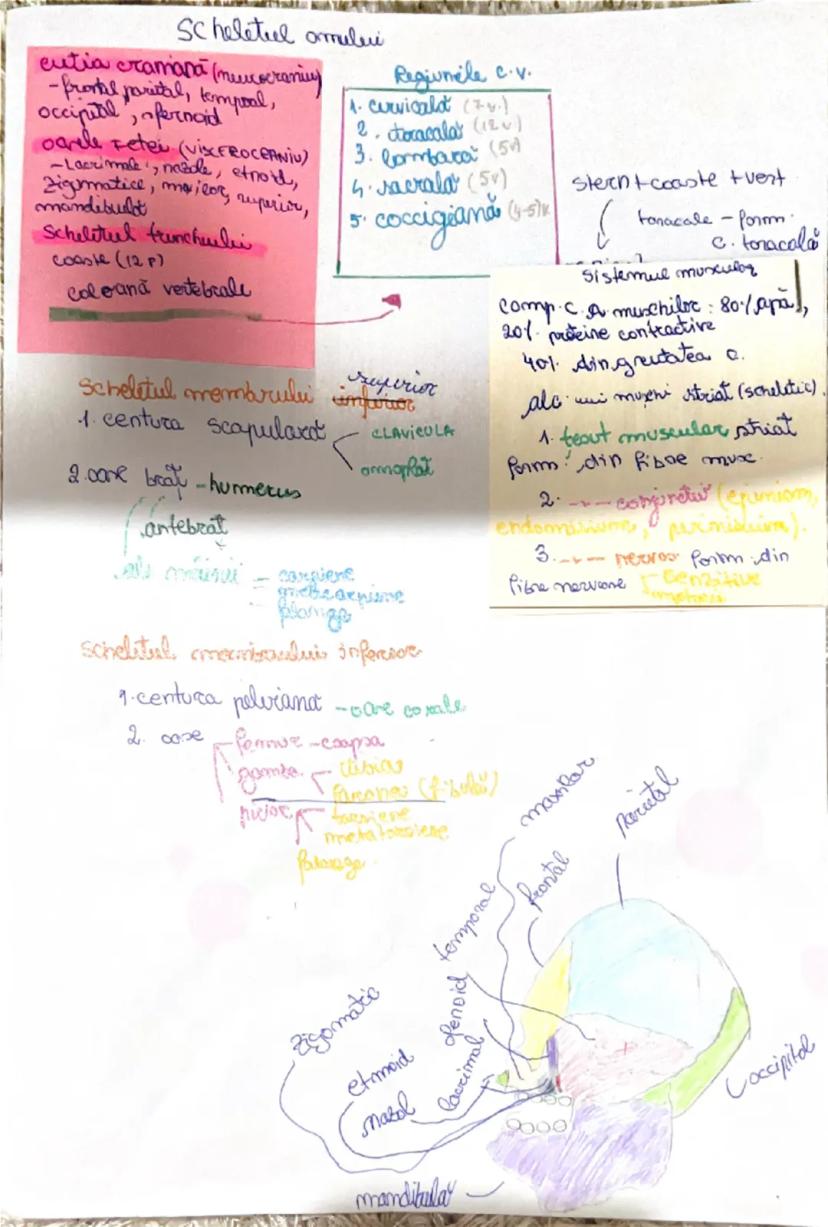 Scheletul omului
cutia craniană (neurocraniu)
- frontal, parietal, temporal,
occipital, sfenoid
oasele fetei (VISCEROCRANIU)
- Lacrimale, nazale, etmoid,
Zigomatice, maxilar, superior,
mandibulă
Scheletul trunchiului
coaste (12 P)
coloană vertebrale
Regiunile c.v.
1. cervicală (7 v.)
2. toracală (12 v.)
3. lombară (5v)
4. sacrală (5v)
5. coccigeană (4-5)v.
stern + coaste + vert
toracale - form.
c. toracală
Sistemul muscular
comp. c. a muschilor : 80% apă,
20% proteine contractive
40% din greutatea c.
alc. unui muschi striat (scheletic).
1. tesut muscular striat
form. din fibre musc.
2. -"- conjunctiv (epimisium,
endomisium, perimisium).
3. -"- nervos form. din
fibre nervoase senzitive
motorii
Scheletul membrului inferior superior
1. centura scapulară CLAVICULA
omoplat
2. oase braț - humerus
antebraț
ale mâinii - carpiene
- metacarpiene
- falange
Scheletul membrului inferior
1. centura pelviana - oase coxale
2. oase femur - coapsa
gamba - tibia
peronei (fibulă)
picior tarsiene
metatarsiene
falange
maxilar
parietal
frontal
temporal
sfenoid
lacrimal
zigomatic
etmoid
nazal
occipital
mandibulă